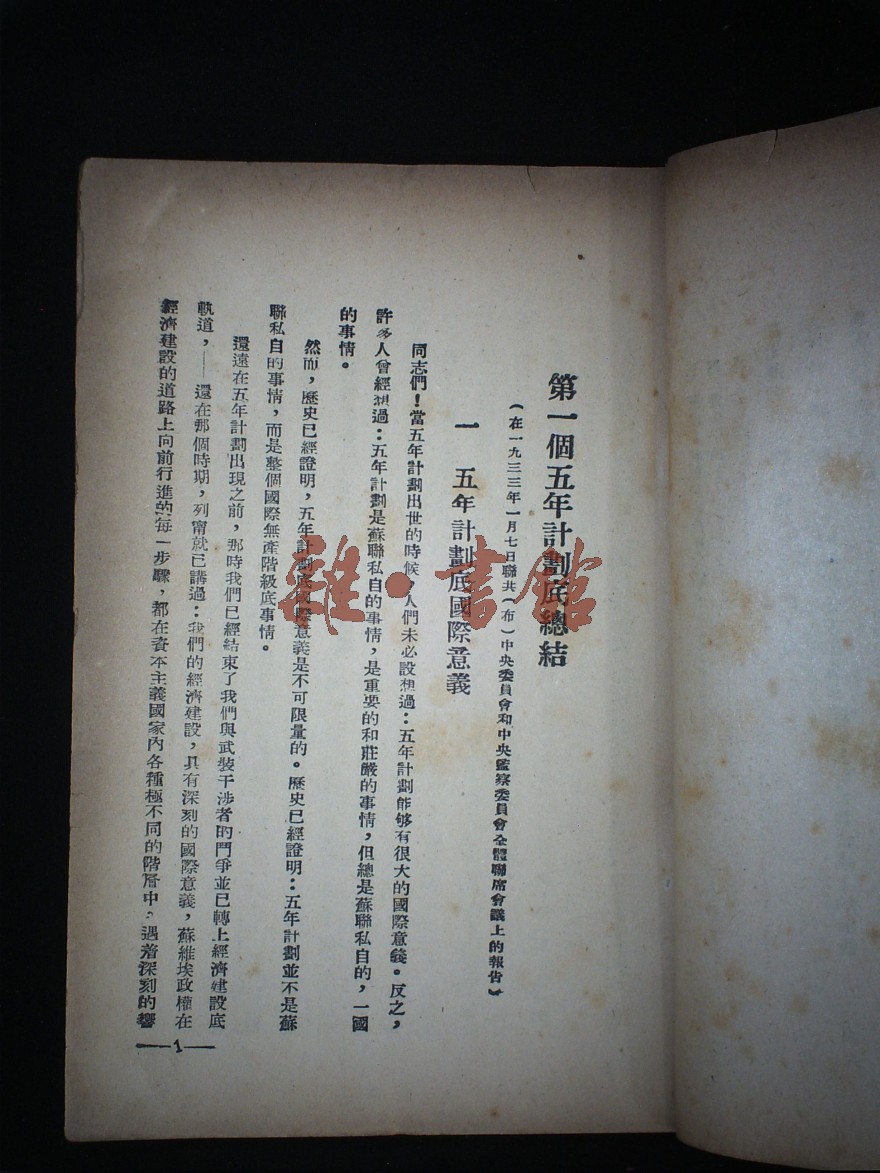 第一個五年計劃底總結
（在一九三三年一月七日聯共（布）中央委員會和中央監察委員會全體聯席會議上的報告）
一　五年計劃底國際意義
同志們！當五年計劃出世的時候，人們未必設想過：五年計劃能够有很大的國際意義。反之，
許多人曾經想過：五年計劃是蘇聯私自的事情，是重要的和莊嚴的事情，但總是蘇聯私自的，一國
的事情。
然而，歷史已經證明，五年計劃底國際意義是不可限量的。歷史已經證明：五年計劃並不是蘇
聯私自的事情，而是整個國際無產階級底事情。
還遠在五年計劃出現之前，那時我們已經結束了我們與武裝干涉者的鬥爭並已轉上經濟建設底
軌道，——還在那個時期，列甯就已講過：我們的經濟建設，具有深刻的國際意義，蘇維埃政權在
經濟建設的道路上向前行進的每一步驟，都在資本主義國家內各種極不同的階層中，遇着深刻的響
—1—
雜·書館